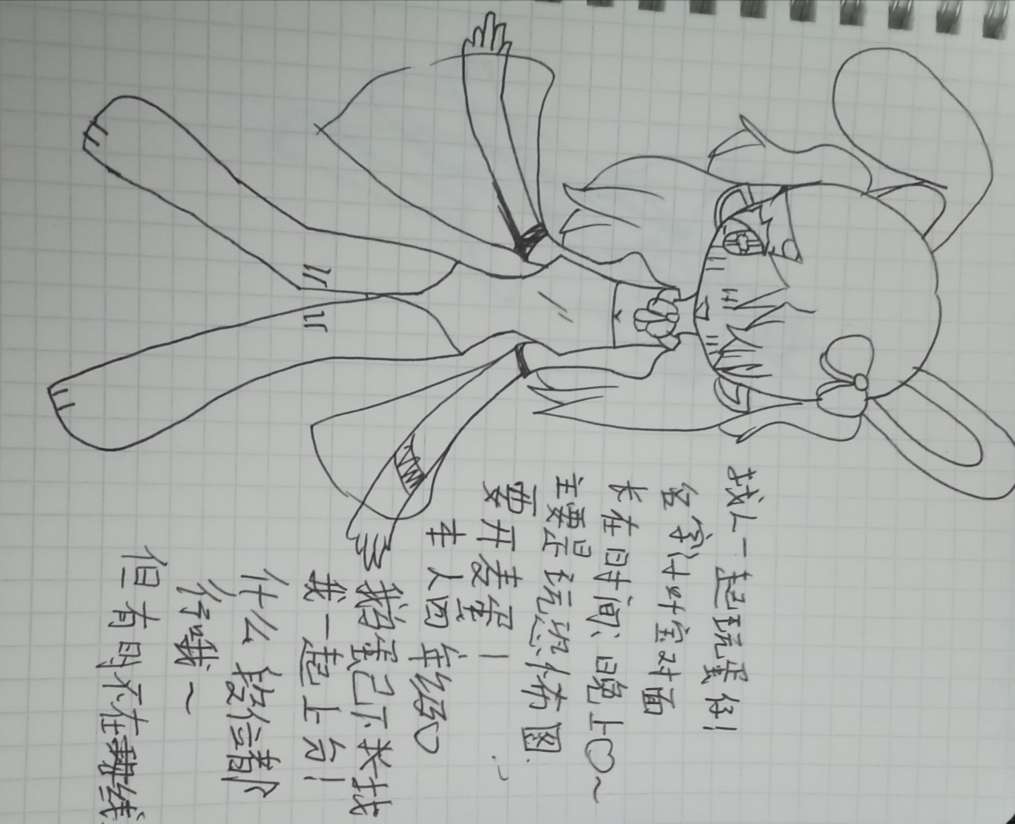 找人一起玩蛋仔!
名字叶叶宝对面
长在时间:晚上♡~
主要是玩恐怖图.
要开麦蛋!
主人四年级♡
我蛋己不长找
我一起上台!
什么段位都
行哦~
但有时不在线